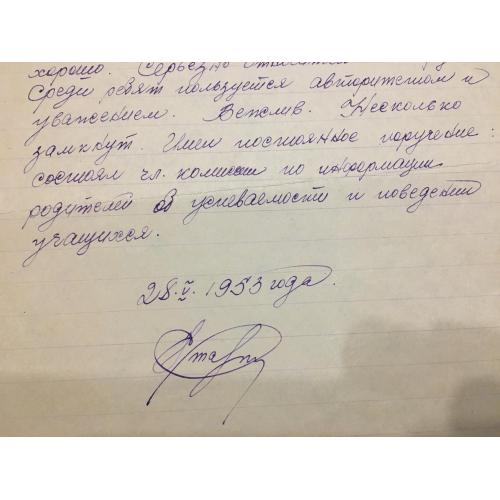 хорошо. Серьезно относится
Среди ребят пользуется авторитетом и
уважением. Вежлив. Несколько
замкнут. Имел постоянное поручение:
состоял чл. комиссии по информации
родителей об успеваемости и поведении
учащихся.
28.V.1953 года.